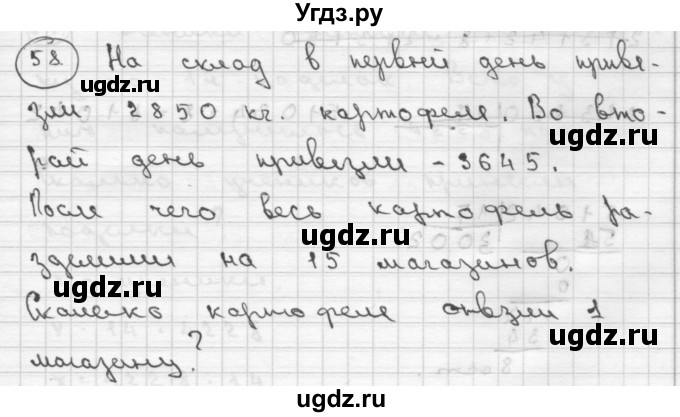 Угдз.ру
58 На склад в первий день приве-
зли 2850 кг. картофеле. Во вто-
рой день привизли - 3645.
После чего весь картофель ра-
зделили на 15 магазинов.
Сколько картофеле отвзли 1
магазину?
ugdz.ru
ugdz.ru
ugdz.ru
ugdz.ru
ugdz.ru
ugdz.ru
ugdz.ru
ugdz.ru